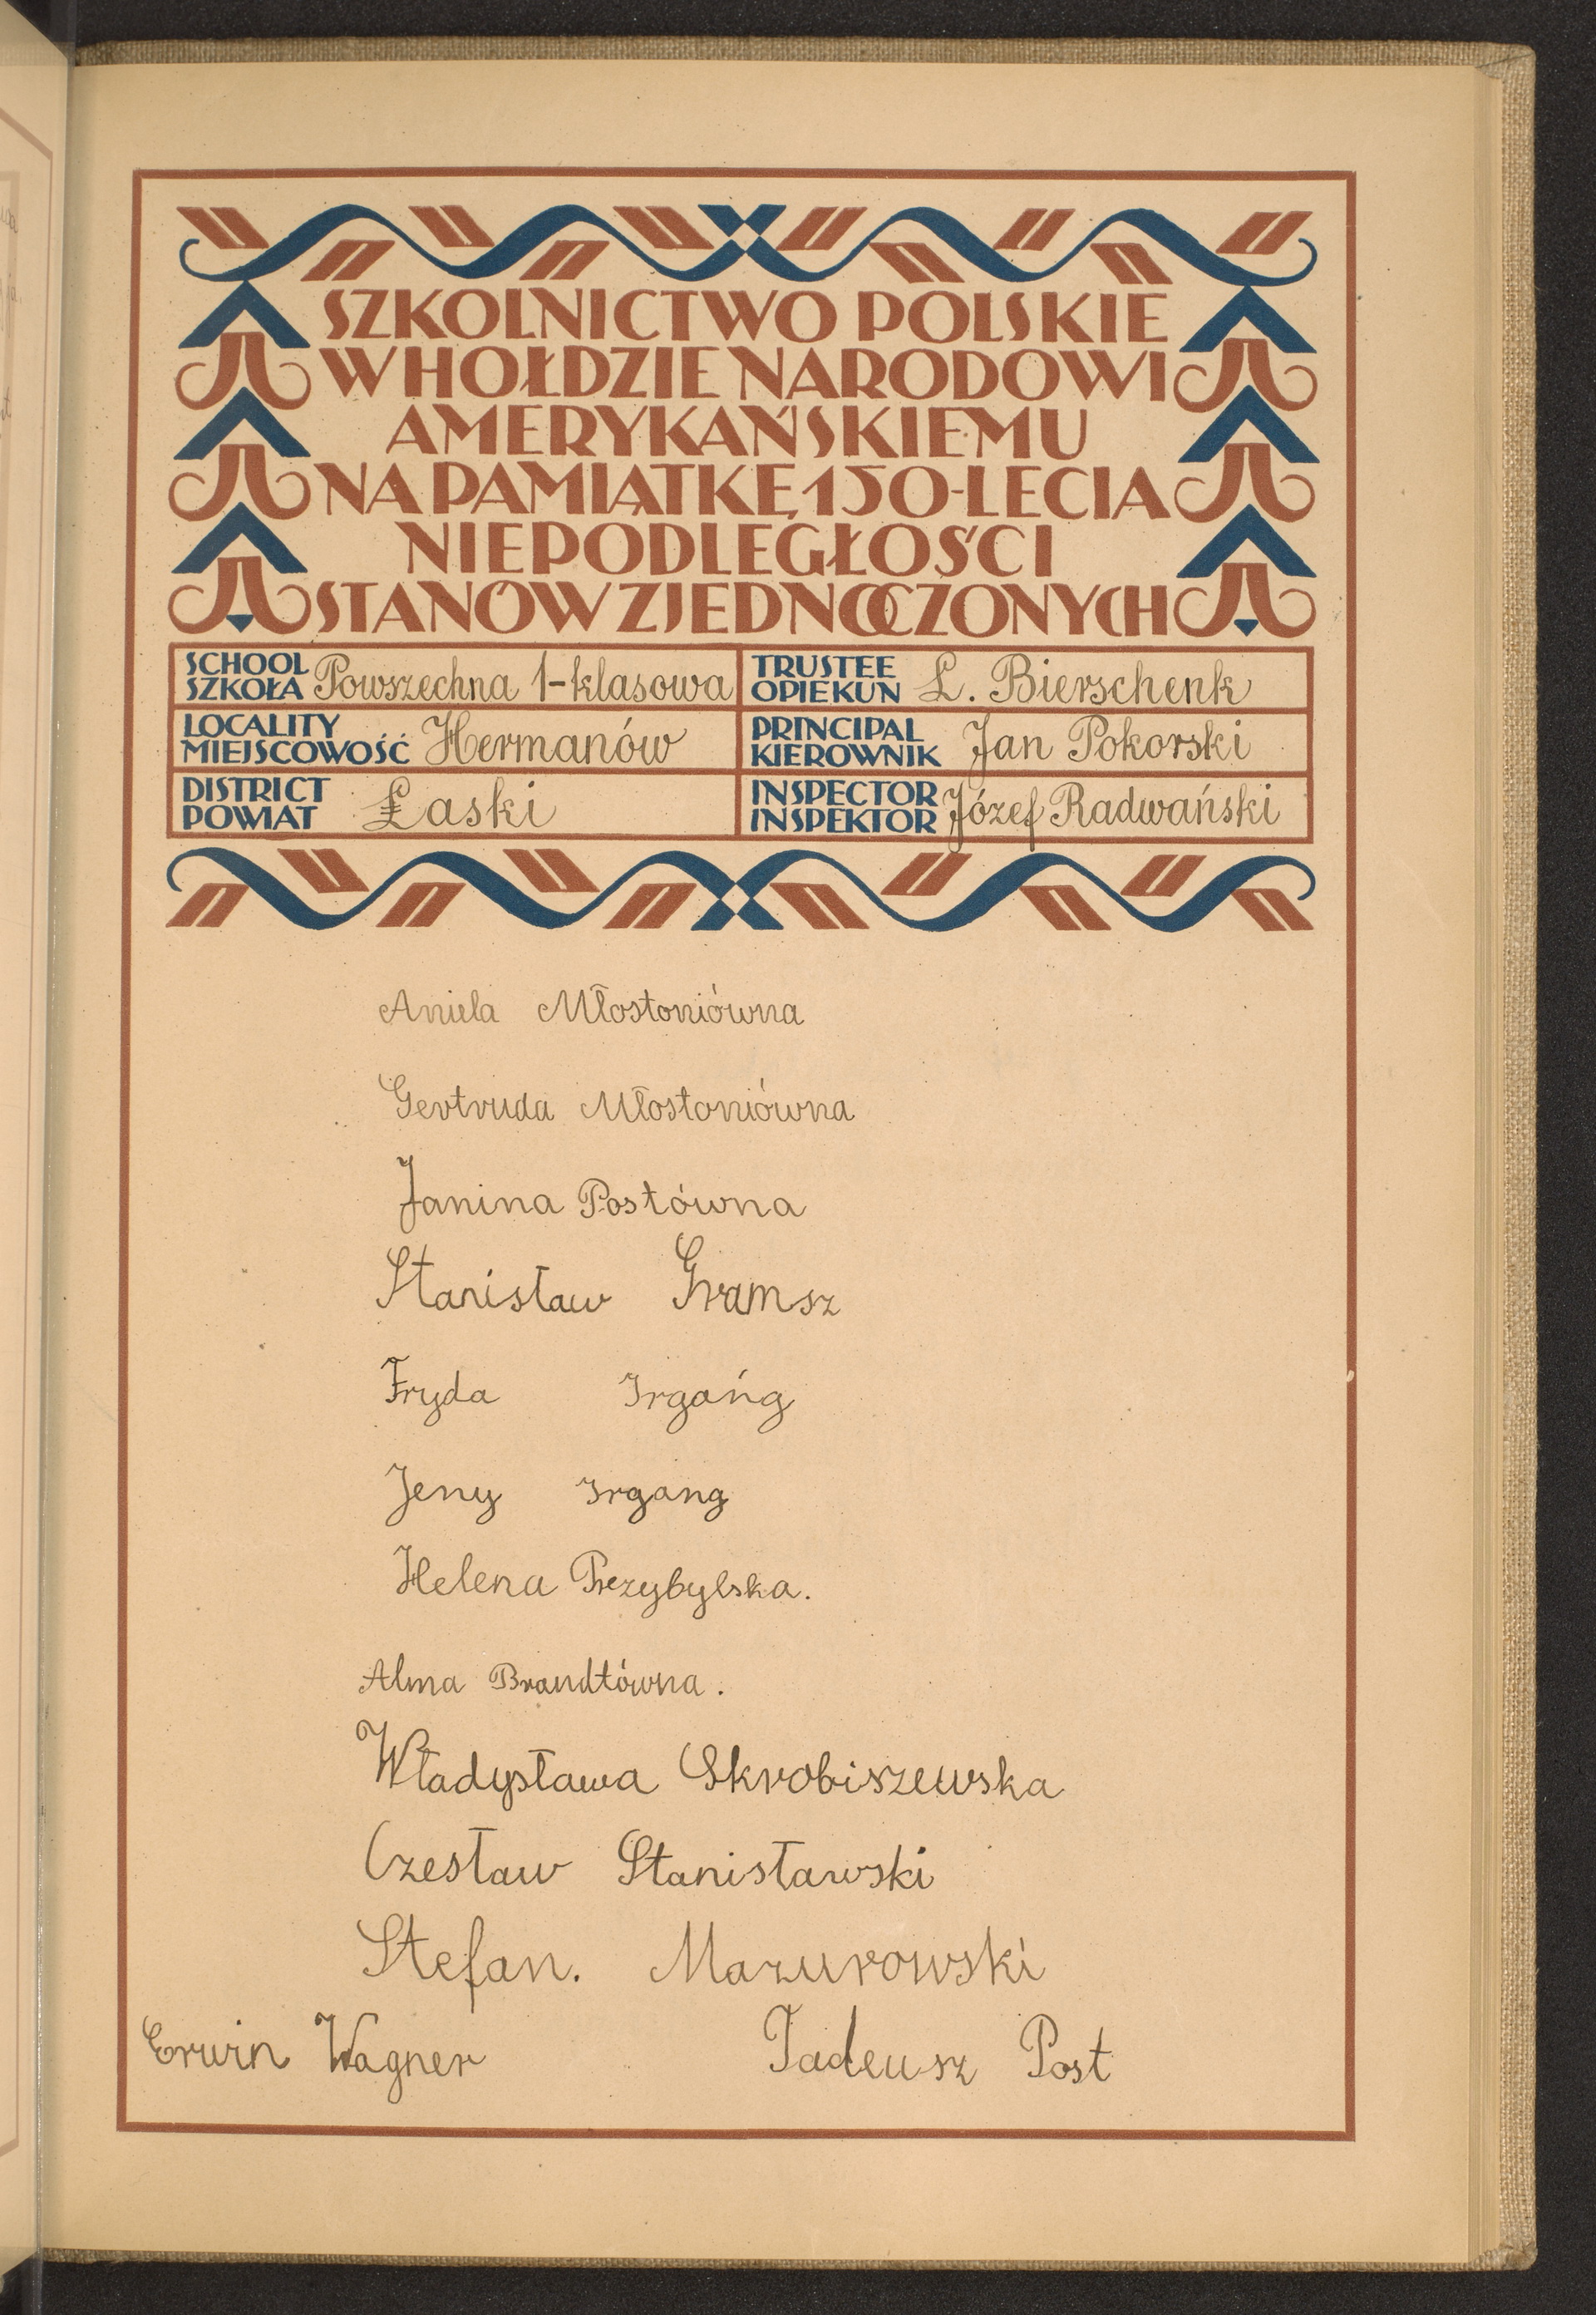 SZKOLNICTWO POLSKIE
W HOŁDZIE NARODOWI
AMERYKAŃSKIEMU
NA PAMIĄTKĘ 150-LECIA
NIEPODLEGŁOŚCI
STANÓW ZJEDNOCZONYCH
SCHOOL
SZKOŁA Powszechna 1-klasowa
TRUSTEE
OPIEKUN L. Bierschenk
LOCALITY
MIEJSCOWOŚĆ Hermanów
PRINCIPAL
KIEROWNIK Jan Pokorski
DISTRICT
POWIAT Łaski
INSPECTOR
INSPEKTOR Józef Radwański
Aniela Młostoniówna
Gertruda Młostoniówna
Janina Postówna
Stanisław Gramsz
Fryda Irgańg
Jeny Irgang
Helena Przybylska.
Alma Brandtówna.
Władysława Skrobiszewska
Czesław Stanisławski
Stefan. Mazurowski
Erwin Wagner Tadeusz Post